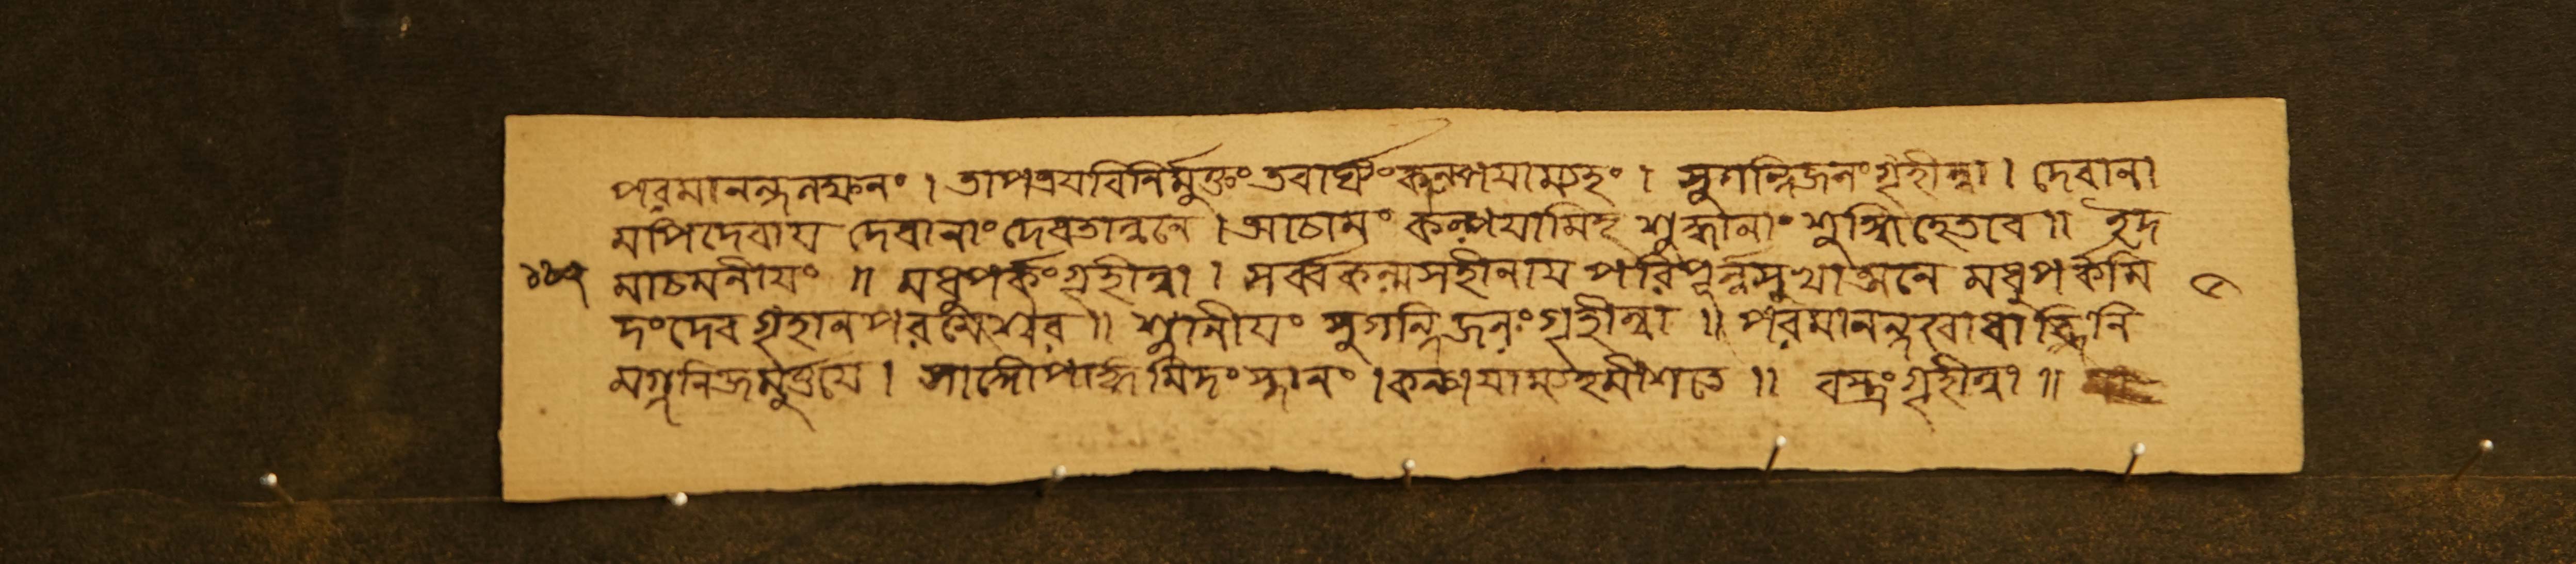 পরমানন্দলক্ষনং । তাপত্রযবিনির্মুক্তং তবার্ঘ্যং কল্পযাম্যহং । সুগন্ধিজলং গৃহীত্বা । দেবানা
মপিদেবায দেবানাং দেবতাত্মনে । আচামং কল্পযামিহ শুদ্ধানাং শুদ্ধিহেতবে ॥ ইদ
মাচমনীযং ॥ মধুপর্কং গৃহীত্বা । সর্ব্বকল্মসহীনায পরিপূর্ন্নসুখাত্মনে মধুপর্কমি
দং দেব গৃহান পরমেশ্বর ॥ স্নানীযং সুগন্ধিজলং গৃহীত্বা ॥ পরমানন্দবোধাব্ধিনি
মগ্ননিজমূর্ত্তযে । সাঙ্গোপাঙ্গমিদং স্নানং । কল্পযাম্যহমীশতে ॥ বস্ত্রং গৃহীত্বা ॥